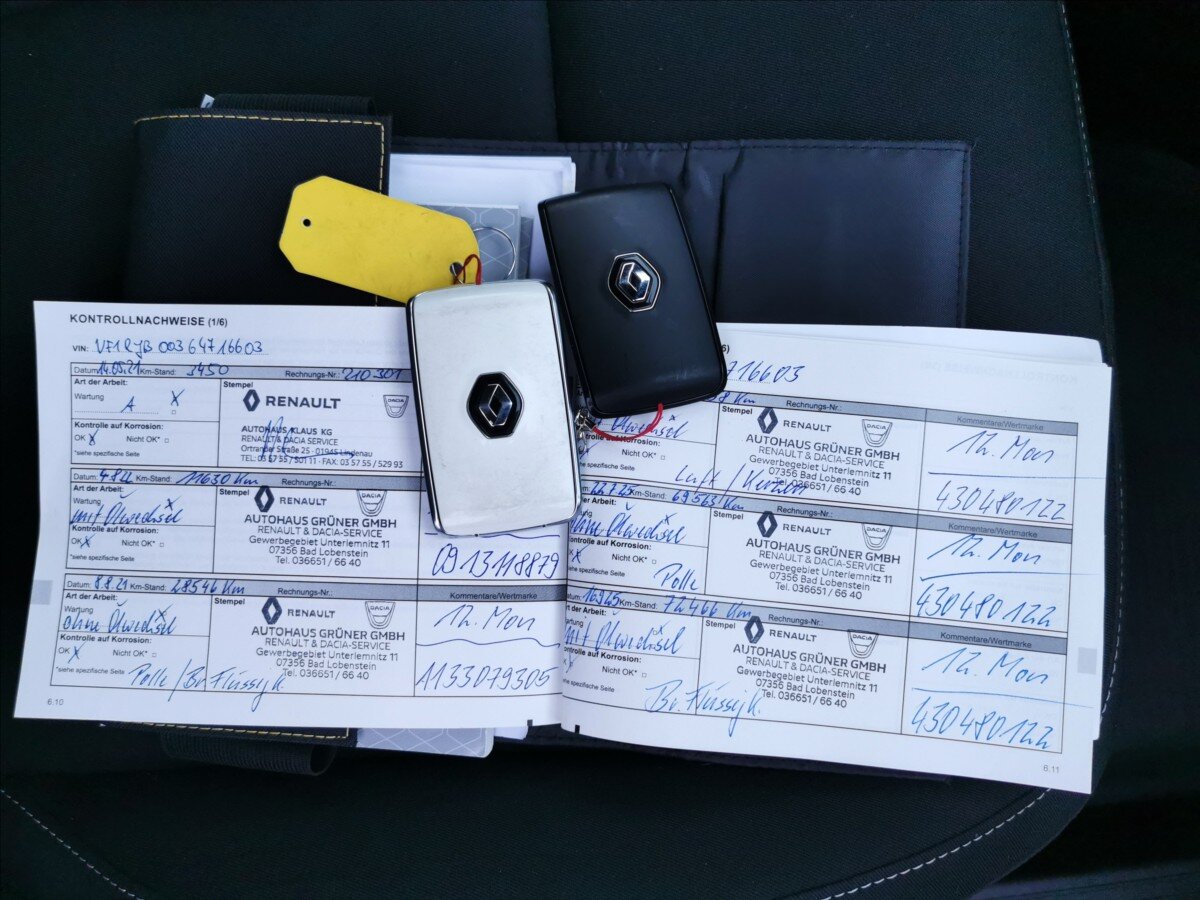 KONTROLLNACHWEISE (1/6)
VIN: VF1RJB 003 64716603
Datum: 14.05.21 Km-Stand: 3450 Rechnungs-Nr.: 210301
Art der Arbeit:
Stempel
Wartung X
A
RENAULT
DACIA
Kontrolle auf Korrosion:
OK X Nicht OK*
*siehe spezifische Seite
AUTOHAUS KLAUS KG
RENAULT & DACIA SERVICE
Ortrander Straße 25 - 01945 Lindenau
TEL: 03 57 55 / 501 11 - FAX: 03 57 55 / 529 93
Datum: Km-Stand: 11630 Km Rechnungs-Nr.:
Art der Arbeit:
Stempel
Wartung X
mit Ölwechsel
RENAULT
DACIA
Kontrolle auf Korrosion:
OK X Nicht OK*
*siehe spezifische Seite
AUTOHAUS GRÜNER GMBH
RENAULT & DACIA-SERVICE
Gewerbegebiet Unterlemnitz 11
07356 Bad Lobenstein
Tel. 036651 / 66 40
0913118879
Datum: Km-Stand: 28546 Km Rechnungs-Nr.:
Kommentare/Wertmarke
Art der Arbeit:
Stempel
Wartung X
ohne Ölwechsel
RENAULT
DACIA
12. Mon
Kontrolle auf Korrosion:
OK X Nicht OK*
*siehe spezifische Seite
AUTOHAUS GRÜNER GMBH
RENAULT & DACIA-SERVICE
Gewerbegebiet Unterlemnitz 11
07356 Bad Lobenstein
Tel. 036651 / 66 40
Polle / Br. Flüssigk.
1133079305
6.10
716603
Km Rechnungs-Nr.:
Kommentare/Wertmarke
Stempel
RENAULT
DACIA
12. Mon
Kontrolle auf Korrosion:
Nicht OK*
siehe spezifische Seite
AUTOHAUS GRÜNER GMBH
RENAULT & DACIA-SERVICE
Gewerbegebiet Unterlemnitz 11
07356 Bad Lobenstein
Tel. 036651 / 66 40
Luft / Kerzen
430480122
Km-Stand: 69563 Km Rechnungs-Nr.:
Kommentare/Wertmarke
Stempel
ohne Ölwechsel
RENAULT
DACIA
12. Mon
Kontrolle auf Korrosion:
Nicht OK*
siehe spezifische Seite
AUTOHAUS GRÜNER GMBH
RENAULT & DACIA-SERVICE
Gewerbegebiet Unterlemnitz 11
07356 Bad Lobenstein
Tel. 036651 / 66 40
Polle
430480122
Km-Stand: 72466 Km Rechnungs-Nr.:
Kommentare/Wertmarke
Art der Arbeit:
Stempel
Wartung X
mit Ölwechsel
RENAULT
DACIA
12. Mon
Kontrolle auf Korrosion:
Nicht OK*
siehe spezifische Seite
AUTOHAUS GRÜNER GMBH
RENAULT & DACIA-SERVICE
Gewerbegebiet Unterlemnitz 11
07356 Bad Lobenstein
Tel. 036651 / 66 40
Br. Flüssigk.
430480122
6.11